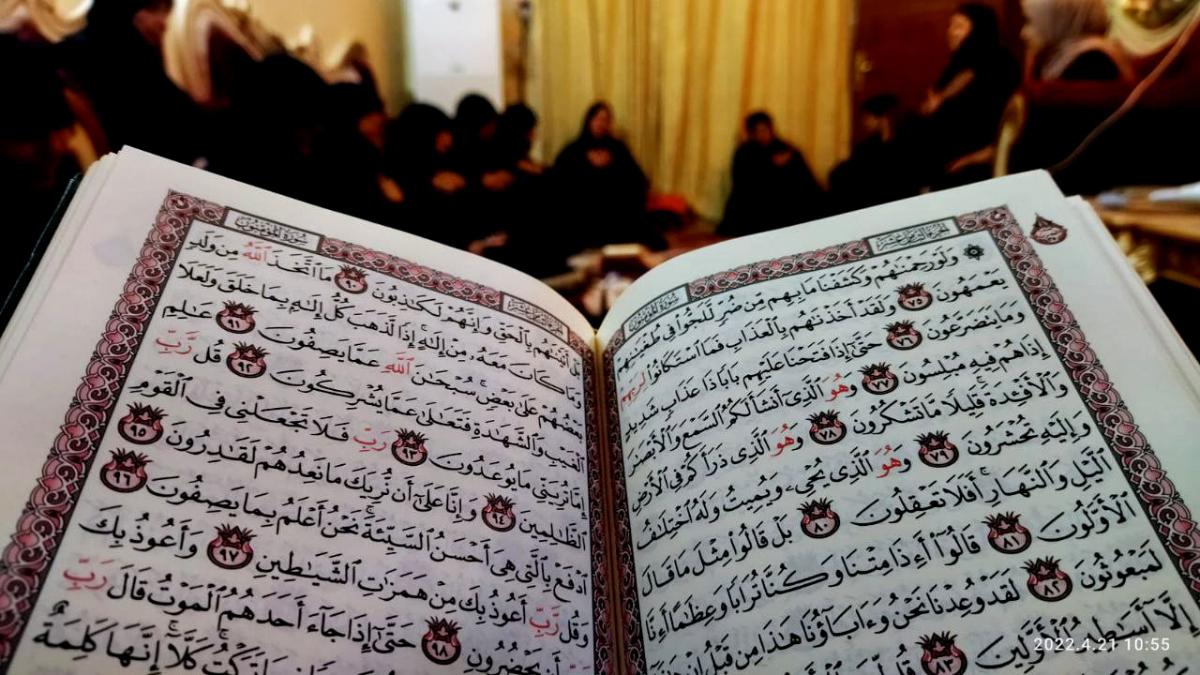 سُورَةُ المُؤْمِنُونَ
وَلَوْ رَحِمْنَٰهُمْ وَكَشَفْنَا مَا بِهِم مِّن ضُرٍّ لَّلَجُّوا۟ فِى طُغْيَٰنِهِمْ
يَعْمَهُونَ ٧٥ وَلَقَدْ أَخَذْنَٰهُم بِٱلْعَذَابِ فَمَا ٱسْتَكَانُوا۟ لِرَبِّهِمْ
وَمَا يَتَضَرَّعُونَ ٧٦ حَتَّىٰٓ إِذَا فَتَحْنَا عَلَيْهِم بَابًا ذَا عَذَابٍ شَدِيدٍ
إِذَا هُمْ فِيهِ مُبْلِسُونَ ٧٧ وَهُوَ ٱلَّذِىٓ أَنشَأَ لَكُمُ ٱلسَّمْعَ وَٱلْأَبْصَٰرَ
وَٱلْأَفْـِٔدَةَ ۚ قَلِيلًا مَّا تَشْكُرُونَ ٧٨ وَهُوَ ٱلَّذِى ذَرَأَكُمْ فِى ٱلْأَرْضِ
وَإِلَيْهِ تُحْشَرُونَ ٧٩ وَهُوَ ٱلَّذِى يُحْىِۦ وَيُمِيتُ وَلَهُ ٱخْتِلَٰفُ
ٱلَّيْلِ وَٱلنَّهَارِ ۚ أَفَلَا تَعْقِلُونَ ٨٠ بَلْ قَالُوا۟ مِثْلَ مَا قَالَ
ٱلْأَوَّلُونَ ٨١ قَالُوٓا۟ أَءِذَا مِتْنَا وَكُنَّا تُرَابًا وَعِظَٰمًا أَءِنَّا
لَمَبْعُوثُونَ ٨٢ لَقَدْ وُعِدْنَا نَحْنُ وَءَابَآؤُنَا هَٰذَا مِن قَبْلُ إِنْ هَٰذَآ
إِلَّآ أَسَٰطِيرُ ٱلْأَوَّلِينَ ٨٣ قُل
سُورَةُ المُؤْمِنُونَ
بَلْ أَتَيْنَٰهُم بِٱلْحَقِّ وَإِنَّهُمْ لَكَٰذِبُونَ ٩٠ مَا ٱتَّخَذَ ٱللَّهُ مِن وَلَدٍ
وَمَا كَانَ مَعَهُۥ مِنْ إِلَٰهٍ ۚ إِذًا لَّذَهَبَ كُلُّ إِلَٰهٍۭ بِمَا خَلَقَ وَلَعَلَا
بَعْضُهُمْ عَلَىٰ بَعْضٍ ۚ سُبْحَٰنَ ٱللَّهِ عَمَّا يَصِفُونَ ٩١ عَٰلِمِ
ٱلْغَيْبِ وَٱلشَّهَٰدَةِ فَتَعَٰلَىٰ عَمَّا يُشْرِكُونَ ٩٢ قُل رَّبِّ
إِمَّا تُرِيَنِّى مَا يُوعَدُونَ ٩٣ رَبِّ فَلَا تَجْعَلْنِى فِى ٱلْقَوْمِ
ٱلظَّٰلِمِينَ ٩٤ وَإِنَّا عَلَىٰٓ أَن نُّرِيَكَ مَا نَعِدُهُمْ لَقَٰدِرُونَ ٩٥
ٱدْفَعْ بِٱلَّتِى هِىَ أَحْسَنُ ٱلسَّيِّئَةَ ۚ نَحْنُ أَعْلَمُ بِمَا يَصِفُونَ ٩٦
وَقُل رَّبِّ أَعُوذُ بِكَ مِنْ هَمَزَٰتِ ٱلشَّيَٰطِينِ ٩٧ وَأَعُوذُ بِكَ
رَبِّ أَن يَحْضُرُونِ ٩٨ حَتَّىٰٓ إِذَا جَآءَ أَحَدَهُمُ ٱلْمَوْتُ قَالَ رَبِّ
تَرَكْتُ ۚ كَلَّآ ۚ إِنَّهَا كَلِمَةٌ
2022.4.21 10:55